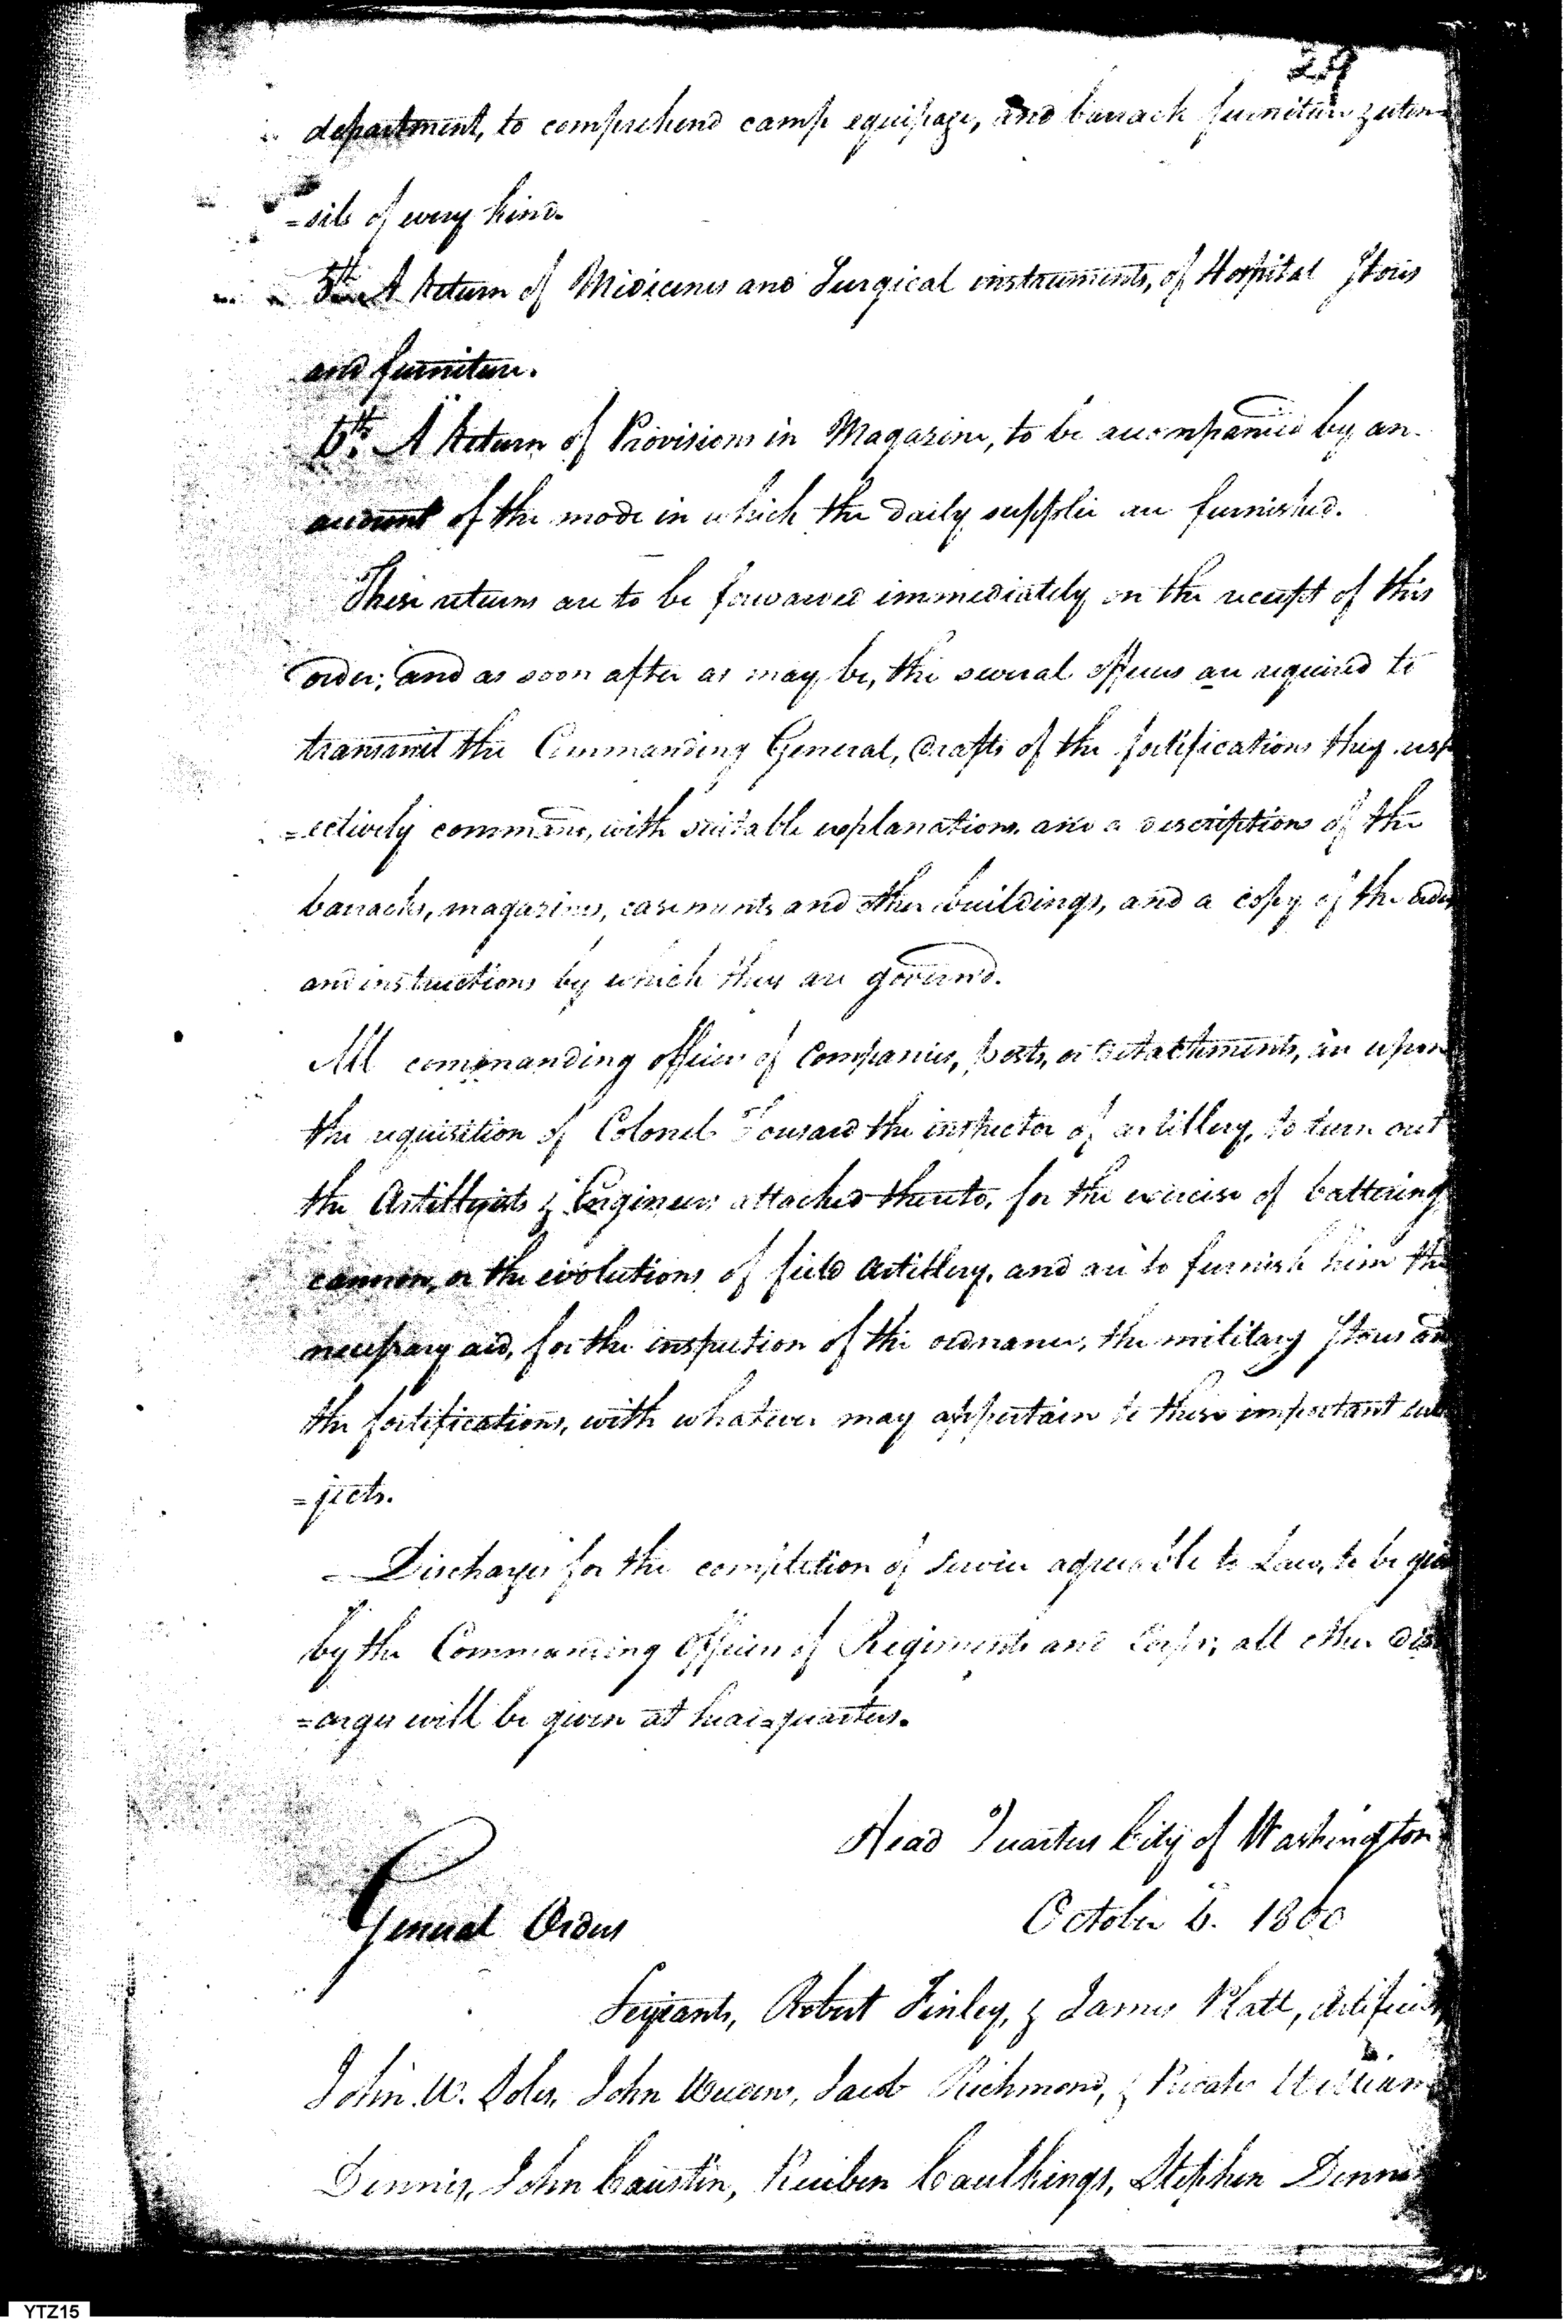 29
department, to comprehend camp equipage, and barrack furniture & uten=
=sils of every kind.
5th. A Return of Medicines and Surgical instruments, of Hospital Stores
and furniture.
6th. A Return of Provisions in Magazine, to be accompanied by an
account of the mode in which the daily supplies are furnished.
These returns are to be forwarded immediately on the receipt of this
order; and as soon after as may be, the several officers are required to
transmit the Commanding General, drafts of the fortifications they resp
=ectively command, with suitable explanations and a description of the
barracks, magazines, casements and other buildings, and a copy of the orders
and instructions by which they are govern'd.
All commanding officers of Companies, posts, or detachments, are upon
the requisition of Colonel Tousard the inspector of artillery, to turn out
the Artillerists & Engineers attached thereto, for the exercise of battering
cannon, or the evolutions of field Artillery, and are to furnish him the
necessary aid, for the inspection of the ordnance, the military Stores and
the fortifications, with whatever may appertain to these important sub
=jects.
Discharges for the completion of service agreeable to Law, to be given
by the Commanding Officers of Regiments and Corps; all other disch
=arges will be given at head=quarters.
Head Quarters City of Washington
General Orders October 6. 1800
Sergeants, Robert Finley, & James Platt, Artificers
John W. John Jacob Richmond, & Privates William
Dennis, John Caustin, Reuben Caulkings, Stephen Dennis
YTZ15